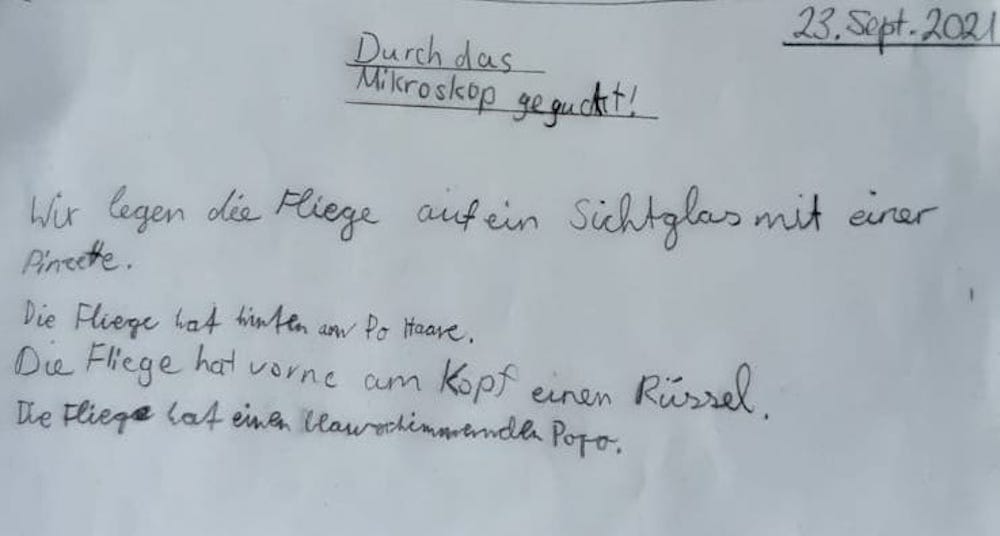 23. Sept. 2021
Durch das
Mikroskop geguckt!
Wir legen die Fliege auf ein Sichtglas mit einer
Pinzette.
Die Fliege hat hinten am Po Haare.
Die Fliege hat vorne am Kopf einen Rüssel.
Die Fliege hat einen blauschimmernden Popo.